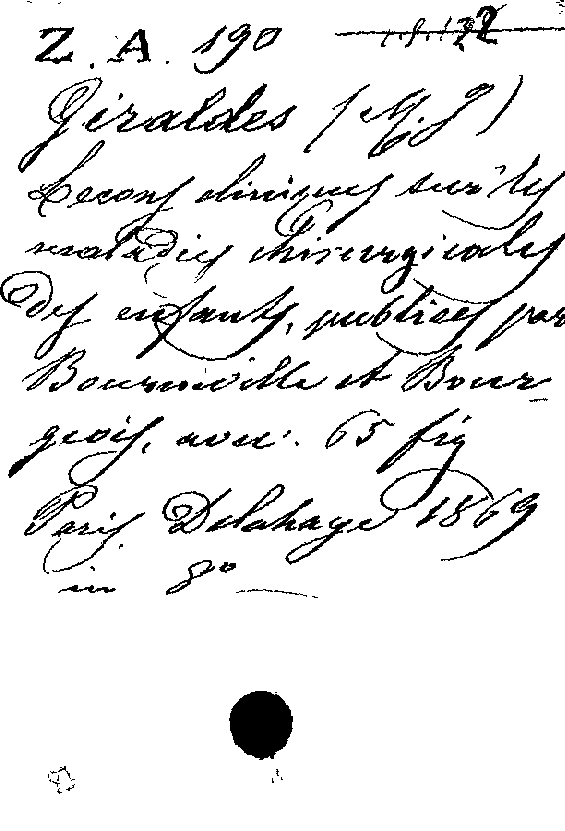 Z. A. 190
Giraldes (M. J)
Lecons cliniques sur les
maladies chirurgicales
des enfants, publiees par
Bourneville et Bour-
geois, avec. 65 fig
Paris Delahaye 1869
in 8°